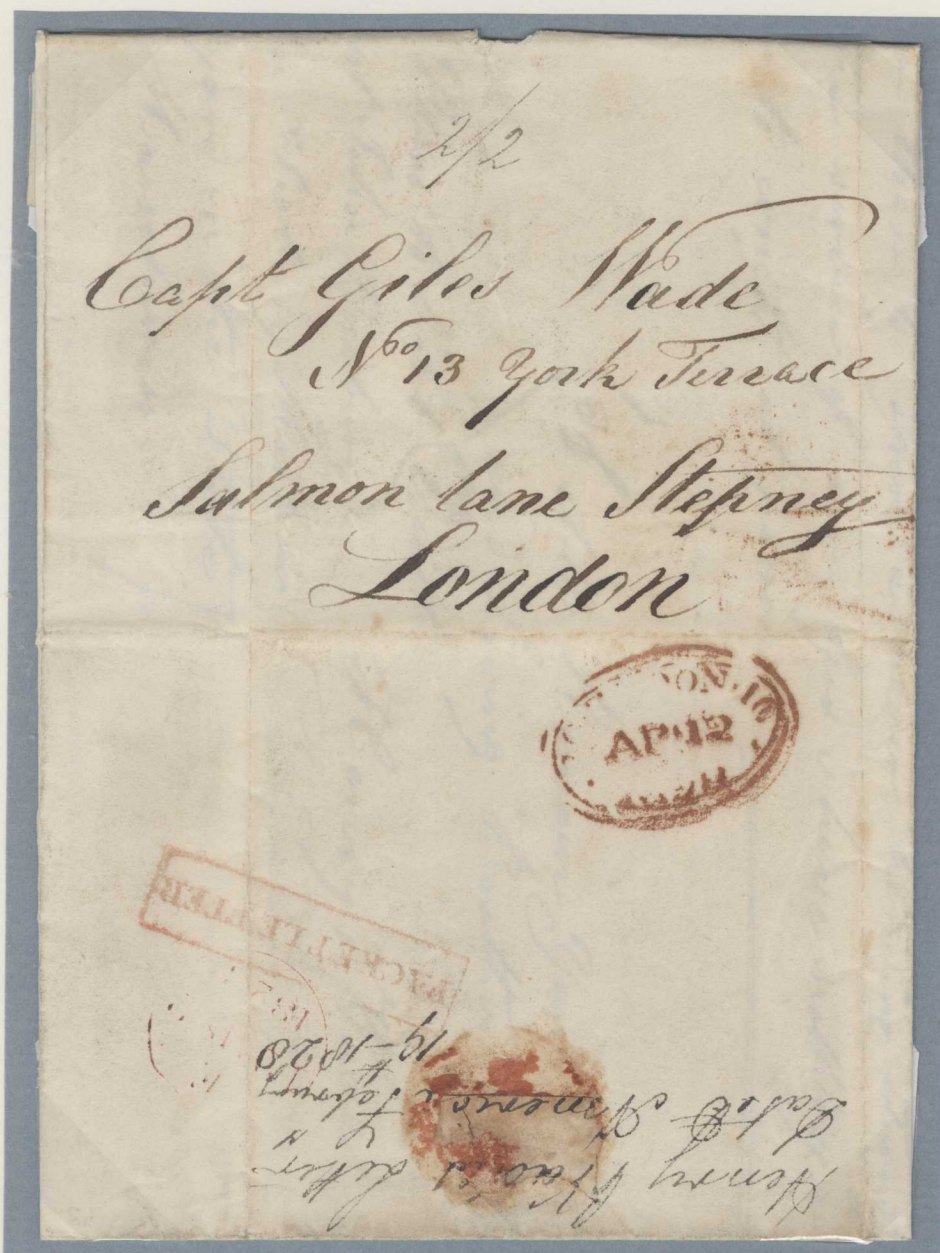 2/2
Capt Giles Wade
No 13 York Terrace
Salmon lane Stepney
London
AP 12
PACKET LETTER
Henry Letter
Dated America February
19 1828